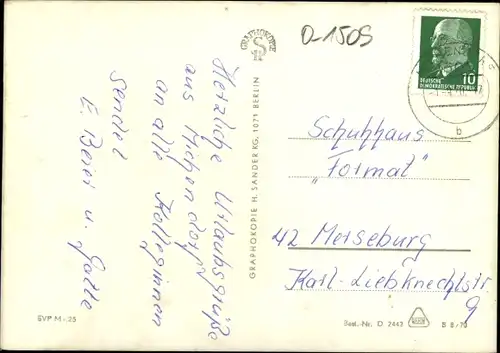 Herzliche Urlaubsgrüße
aus Michendorf
an alle Kolleginnen
sendet
E. Beier u. Gatte
GRAPHOKOPIE
GRAPHOKOPIE H. SANDER KG, 1071 BERLIN
SVP M-25
D-1505
10
DEUTSCHE
DEMOKRATISCHE REPUBLIK
b
Schuhhaus
"Format"
42 Merseburg
Karl-Liebknechtstr.
9
Best.-Nr. D 2443
B 8/70